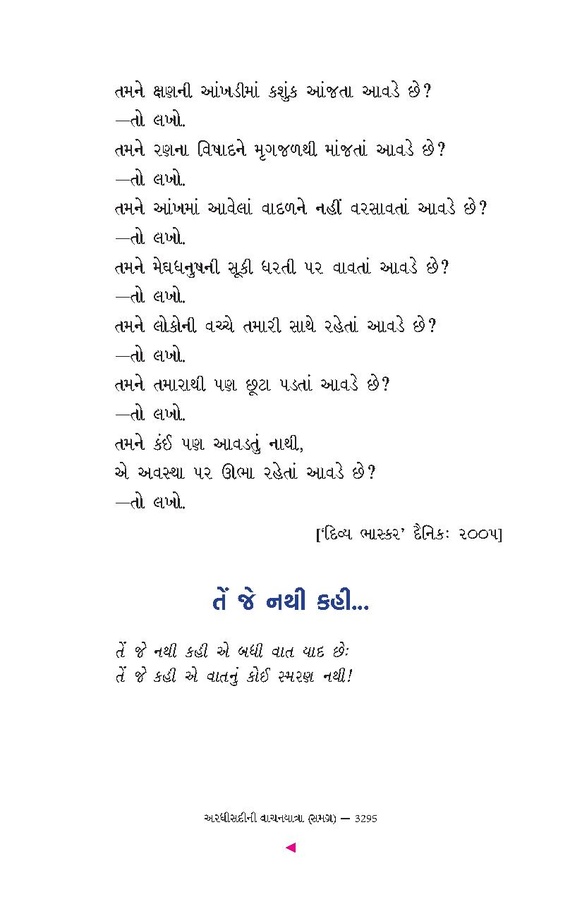 તમને ક્ષણની આંખડીમાં કશુંક આંજતા આવડે છે?
—તો લખો.
તમને રણના વિષાદને મૃગજળથી માંજતાં આવડે છે?
—તો લખો.
તમને આંખમાં આવેલાં વાદળને નહીં વરસાવતાં આવડે છે?
—તો લખો.
તમને મેઘધનુષની સૂકી ધરતી પર વાવતાં આવડે છે?
—તો લખો.
તમને લોકોની વચ્ચે તમારી સાથે રહેતાં આવડે છે?
—તો લખો.
તમને તમારાથી પણ છૂટા પડતાં આવડે છે?
—તો લખો.
તમને કંઈ પણ આવડતું નાથી,
એ અવસ્થા પર ઊભા રહેતાં આવડે છે?
—તો લખો.
[‘દિવ્ય ભાસ્કર’ દૈનિક: ૨૦૦૫]
તેં જે નથી કહી...
તેં જે નથી કહી એ બધી વાત યાદ છે:
તેં જે કહી એ વાતનું કોઈ સ્મરણ નથી!
અરધીસદીની વાચનયાત્રા (સમગ્ર) — 3295